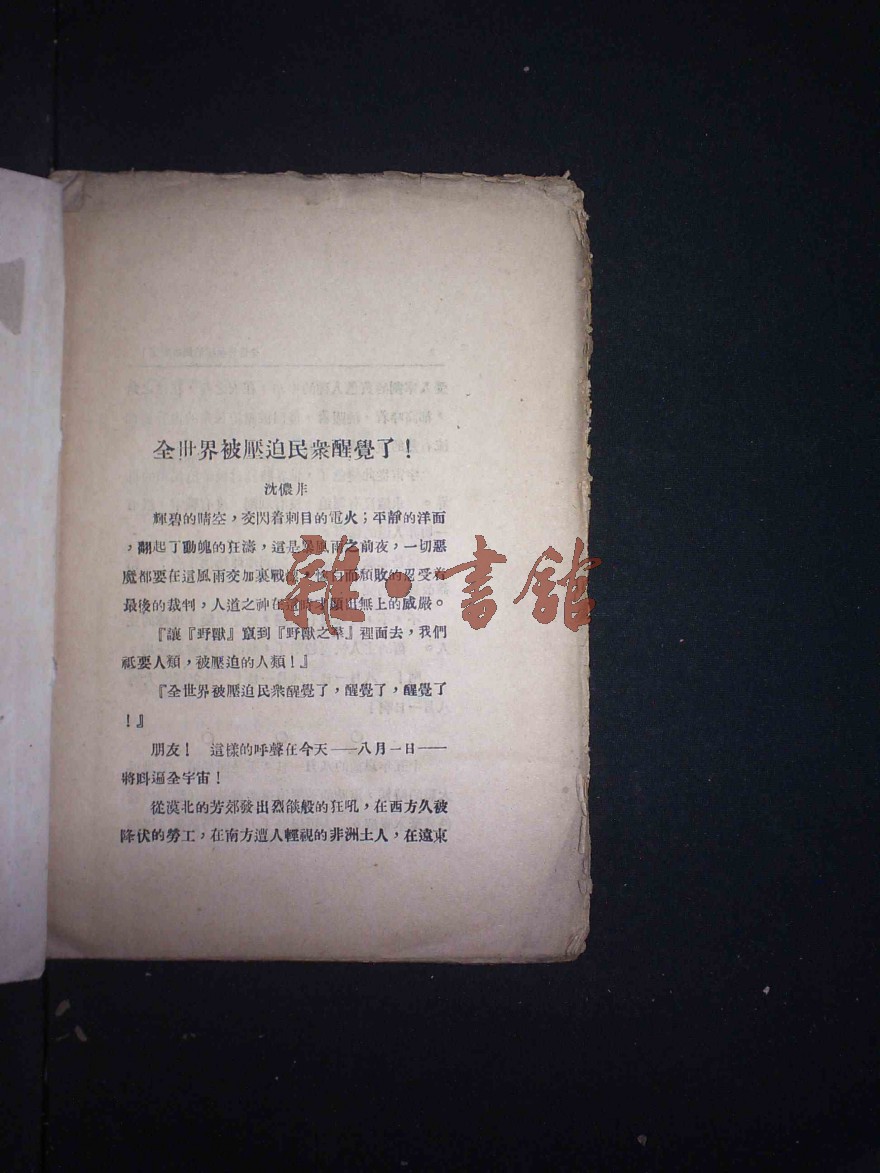 全世界被壓迫民衆醒覺了！
沈儂非
輝碧的晴空，交閃着刺目的電火；平靜的洋面
，翻起了動魄的狂濤，這是暴風雨之前夜，一切惡
魔都要在這風雨交加裏戰慄，　　而頹敗的忍受着
最後的裁判，人道之神在這時才顯出無上的威嚴。
『讓『野獸』竄到『野獸之羣』裡面去，我們
祇要人類，被壓迫的人類！』
『全世界被壓迫民衆醒覺了，醒覺了，醒覺了
！』
朋友！　這樣的呼聲在今天——八月一日——
將呌遍全宇宙！
從漠北的芳郊發出烈燄般的狂吼，在西方久被
降伏的勞工，在南方遭人輕視的非洲土人，在遠東
雜·書館